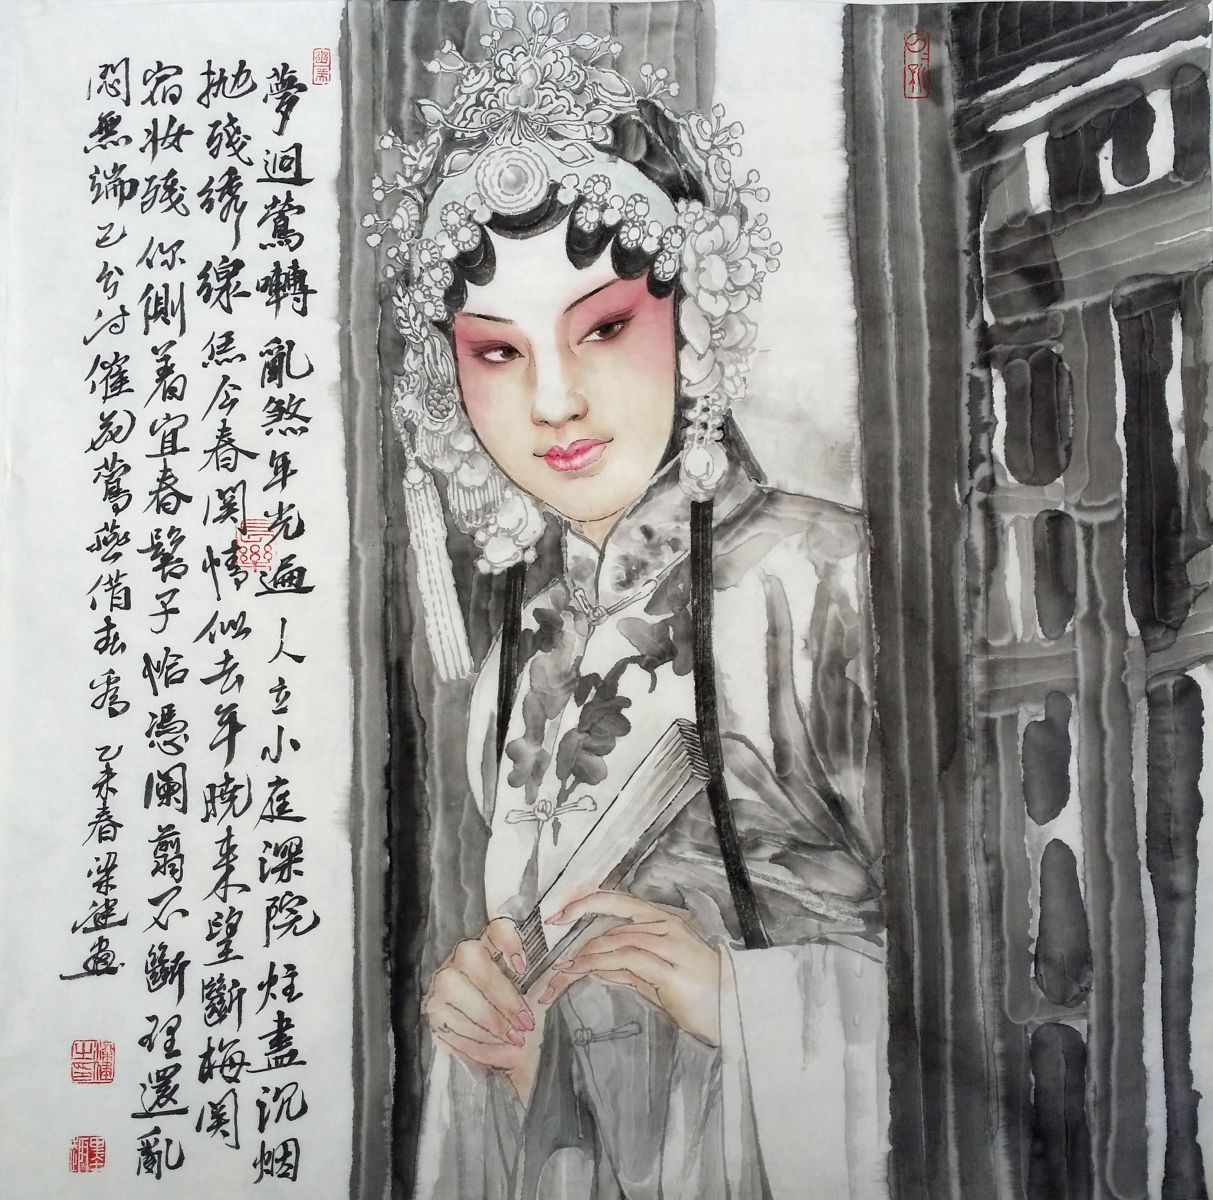 夢迴莺囀亂煞年光遍人立小庭深院炷盡沉烟
抛殘绣線恁今春関情似去年晓来望斷梅関
宿妆残你側着宜春髻子恰憑阑翦不斷理還亂
悶無端已分付催花莺燕借春看乙未春梁健画
長樂